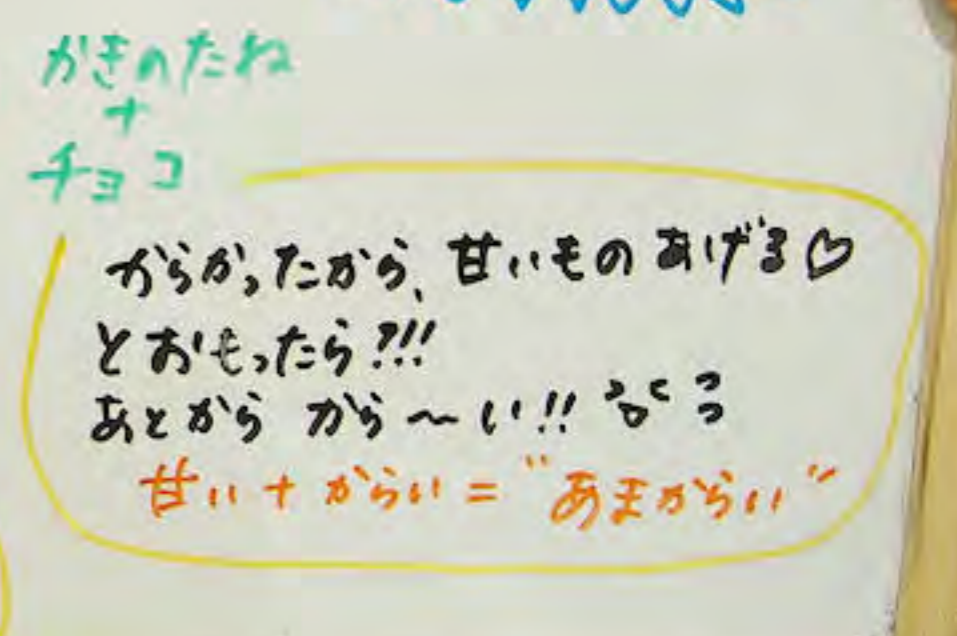 かきのたね
+
チョコ
からかったから、甘いものあげる♡
とおもったら?!!!
あとから から〜い!!
甘い+からい="あまからい"